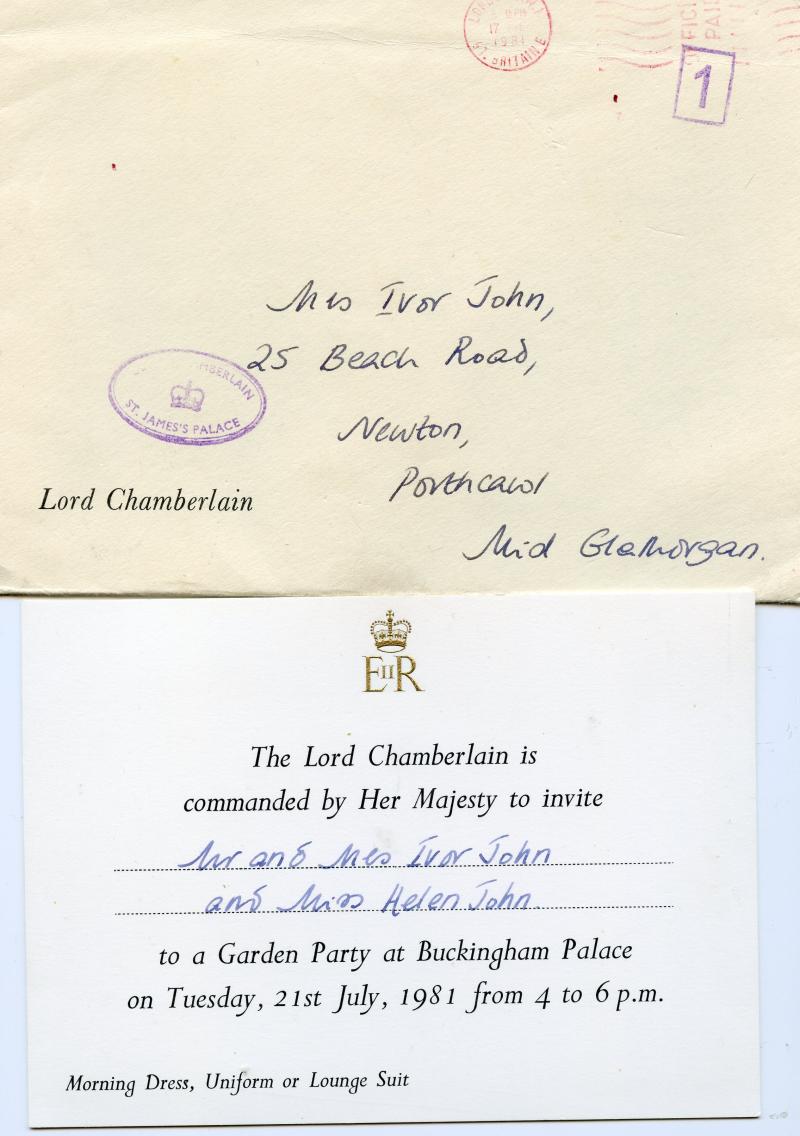 17
1981
GT. BRITAIN
PAID
1
Mrs Ivor John,
25 Beach Road,
Newton,
Porthcawl
Mid Glamorgan.
CHAMBERLAIN
ST. JAMES'S PALACE
Lord Chamberlain
EIIR
The Lord Chamberlain is
commanded by Her Majesty to invite
Mr and Mrs Ivor John
and Miss Helen John.
to a Garden Party at Buckingham Palace
on Tuesday, 21st July, 1981 from 4 to 6 p.m.
Morning Dress, Uniform or Lounge Suit